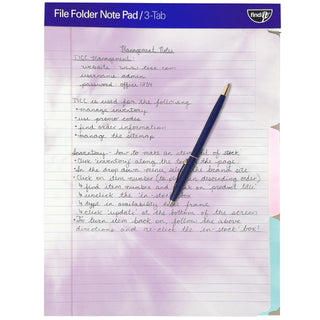 File Folder Note Pad / 3-Tab
find It
Management Notes
TICC Management:
website www.ticc.com
username admin
password office1234
TICC is used for the following
• manage inventory
• use promo codes
• find order information
• manage the sitemap
Inventory - how to make an item out of stock
• Click 'inventory' along the top of the page
• In the drop down menu, select the brand site
• Click on item number (to put in descending order)
↳ find item number and click on 'product title'
↳ unclick the 'in-stock' box
↳ type in availability time frame
↳ click 'update' at the bottom of the screen
• To turn item back on, follow the above
directions and re-click the in-stock box!